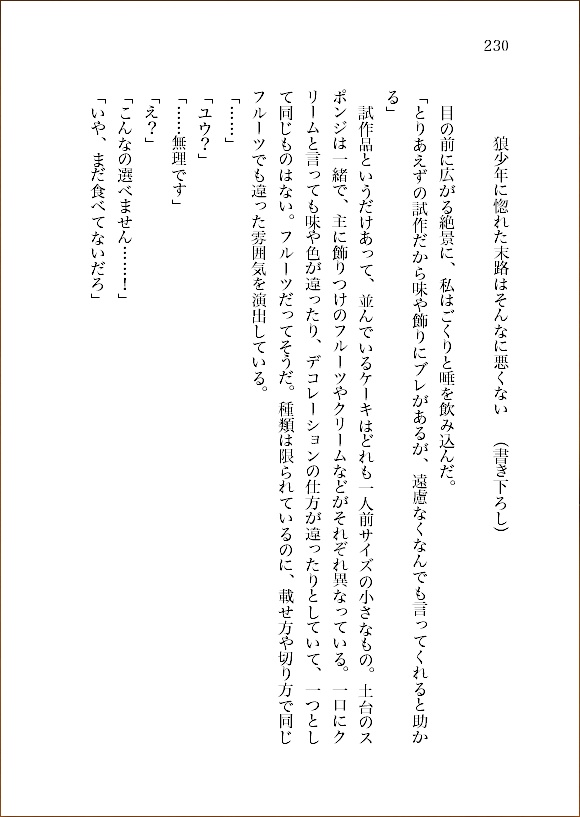 230
狼少年に惚れた末路はそんなに悪くない　（書き下ろし）
目の前に広がる絶景に、私はごくりと唾を飲み込んだ。
「とりあえずの試作だから味や飾りにブレがあるが、遠慮なくなんでも言ってくれると助か
る」
試作品というだけあって、並んでいるケーキはどれも一人前サイズの小さなもの。土台のス
ポンジは一緒で、主に飾りつけのフルーツやクリームなどがそれぞれ異なっている。一口にク
リームと言っても味や色が違ったり、デコレーションの仕方が違ったりとしていて、一つとし
て同じものはない。フルーツだってそうだ。種類は限られているのに、載せ方や切り方で同じ
フルーツでも違った雰囲気を演出している。
「……」
「ユウ？」
「……無理です」
「え？」
「こんなの選べません……！」
「いや、まだ食べてないだろ」